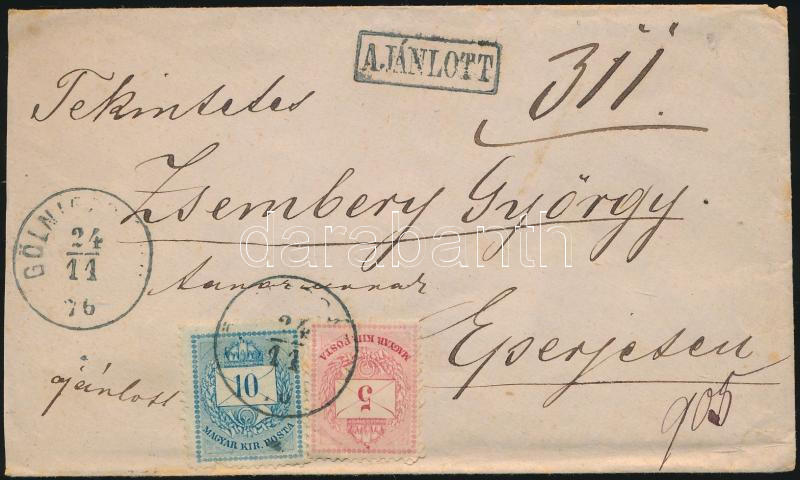 AJÁNLOTT
311.
Tekintetes
Zsembery György
GÖLNIC
24
11
76
darabanth
tanár urnak
Eperjesen
24
11
ajánlott
10
MAGYAR KIR. POSTA
MAGYAR KIR. POSTA
5
905